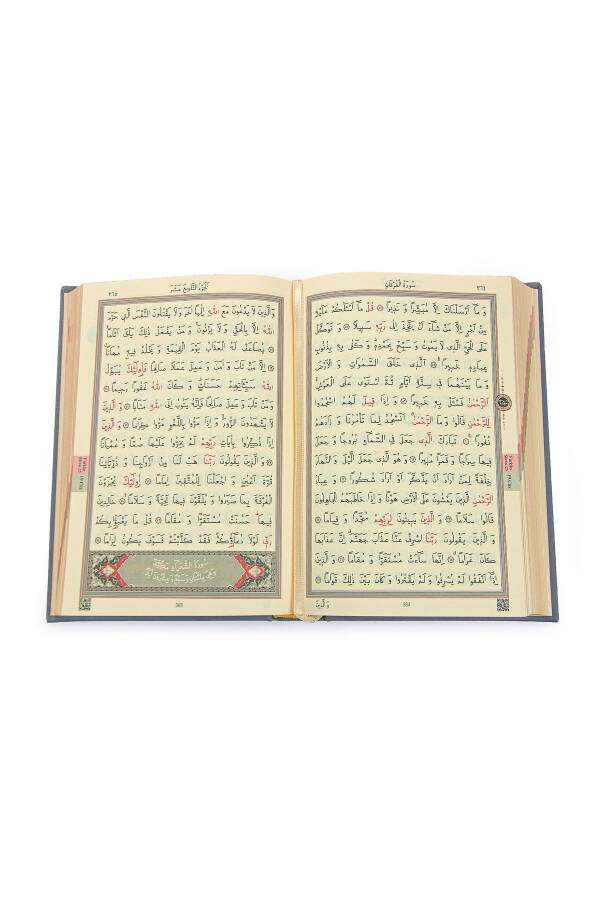 سُورَةُ الْفُرْقَانِ
وَمَا اَرْسَلْنَاكَ اِلَّا مُبَشِّرًا وَنَذِيرًا ۞ قُلْ مَا اَسْـَٔلُكُمْ عَلَيْهِ
مِنْ اَجْرٍ اِلَّا مَنْ شَاءَ اَنْ يَتَّخِذَ اِلٰى رَبِّهِ سَبِيلًا ۞ وَتَوَكَّلْ
عَلَى الْحَيِّ الَّذِي لَا يَمُوتُ وَسَبِّحْ بِحَمْدِهِ وَكَفٰى بِهِ بِذُنُوبِ
عِبَادِهِ خَبِيرًا ۞ اَلَّذِي خَلَقَ السَّمٰوَاتِ وَالْاَرْضَ
وَمَا بَيْنَهُمَا فِي سِتَّةِ اَيَّامٍ ثُمَّ اسْتَوٰى عَلَى الْعَرْشِ
اَلرَّحْمٰنُ فَسْـَٔلْ بِهِ خَبِيرًا ۞ وَاِذَا قِيلَ لَهُمُ اسْجُدُوا
لِلرَّحْمٰنِ قَالُوا وَمَا الرَّحْمٰنُ اَنَسْجُدُ لِمَا تَأْمُرُنَا وَزَادَهُمْ
نُفُورًا ۞ تَبَارَكَ الَّذِي جَعَلَ فِي السَّمَاءِ بُرُوجًا وَجَعَلَ
فِيهَا سِرَاجًا وَقَمَرًا مُنِيرًا ۞ وَهُوَ الَّذِي جَعَلَ الَّيْلَ وَالنَّهَارَ
خِلْفَةً لِمَنْ اَرَادَ اَنْ يَذَّكَّرَ اَوْ اَرَادَ شُكُورًا ۞ وَعِبَادُ
الرَّحْمٰنِ الَّذِينَ يَمْشُونَ عَلَى الْاَرْضِ هَوْنًا وَاِذَا خَاطَبَهُمُ الْجَاهِلُونَ
قَالُوا سَلَامًا ۞ وَالَّذِينَ يَبِيتُونَ لِرَبِّهِمْ سُجَّدًا وَقِيَامًا ۞
وَالَّذِينَ يَقُولُونَ رَبَّنَا اصْرِفْ عَنَّا عَذَابَ جَهَنَّمَ اِنَّ عَذَابَهَا
كَانَ غَرَامًا ۞ اِنَّهَا سَاءَتْ مُسْتَقَرًّا وَمُقَامًا ۞ وَالَّذِينَ
اِذَا اَنْفَقُوا لَمْ يُسْرِفُوا وَلَمْ يَقْتُرُوا وَكَانَ بَيْنَ ذٰلِكَ قَوَامًا ۞
وَالَّذِينَ
364
اَلْجُزْءُ التَّاسِعَ عَشَرَ
٣٦٥
وَالَّذِينَ لَا يَدْعُونَ مَعَ اللّٰهِ اِلٰهًا اٰخَرَ وَلَا يَقْتُلُونَ النَّفْسَ الَّتِي حَرَّمَ
اللّٰهُ اِلَّا بِالْحَقِّ وَلَا يَزْنُونَ وَمَنْ يَفْعَلْ ذٰلِكَ يَلْقَ اَثَامًا ۞
يُضَاعَفْ لَهُ الْعَذَابُ يَوْمَ الْقِيٰمَةِ وَيَخْلُدْ فِيهِ مُهَانًا
۞ اِلَّا مَنْ تَابَ وَاٰمَنَ وَعَمِلَ عَمَلًا صَالِحًا فَاُولٰئِكَ يُبَدِّلُ
اللّٰهُ سَيِّـَٔاتِهِمْ حَسَنَاتٍ وَكَانَ اللّٰهُ غَفُورًا رَحِيمًا ۞
وَمَنْ تَابَ وَعَمِلَ صَالِحًا فَاِنَّهُ يَتُوبُ اِلَى اللّٰهِ مَتَابًا ۞ وَالَّذِينَ
لَا يَشْهَدُونَ الزُّورَ وَاِذَا مَرُّوا بِاللَّغْوِ مَرُّوا كِرَامًا ۞ وَالَّذِينَ
اِذَا ذُكِّرُوا بِاٰيَاتِ رَبِّهِمْ لَمْ يَخِرُّوا عَلَيْهَا صُمًّا وَعُمْيَانًا
۞ وَالَّذِينَ يَقُولُونَ رَبَّنَا هَبْ لَنَا مِنْ اَزْوَاجِنَا وَذُرِّيَّاتِنَا
قُرَّةَ اَعْيُنٍ وَاجْعَلْنَا لِلْمُتَّقِينَ اِمَامًا ۞ اُولٰئِكَ يُجْزَوْنَ
الْغُرْفَةَ بِمَا صَبَرُوا وَيُلَقَّوْنَ فِيهَا تَحِيَّةً وَسَلَامًا ۞ خَالِدِينَ
فِيهَا حَسُنَتْ مُسْتَقَرًّا وَمُقَامًا ۞ قُلْ مَا يَعْبَؤُا بِكُمْ
رَبِّي لَوْلَا دُعَاؤُكُمْ فَقَدْ كَذَّبْتُمْ فَسَوْفَ يَكُونُ لِزَامًا ۞
سُورَةُ الشُّعَرَاءِ مَكِّيَّةٌ
365